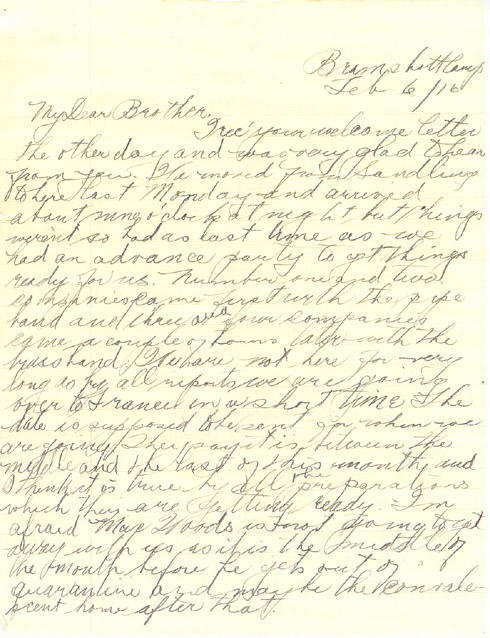 Bramshott Camp
Feb 6/16
My Dear Brother,
I rec' your welcome letter
the other day and was very glad to hear
from you. We moved from Sandling
to here last Monday and arrived
about nine o'clock at night but things
weren't so bad as last time as we
had an advance party to get things
ready for us. Number one and two
companies came first with the pipe
band and three and four companies
came a couple of hours later with the
brass band. We are not here for very
long as by all reports we are going
over to France in a short time. The
date is supposed to be sent for when we
are going. They say it is between the
middle and the last of this month and
I think it is true by all the preparations
which they are getting ready. I'm
afraid Max Woods is not going to get
away with us, as it is the middle of
the month before he gets out of
quarantine and maybe the convale-
scent home after that.